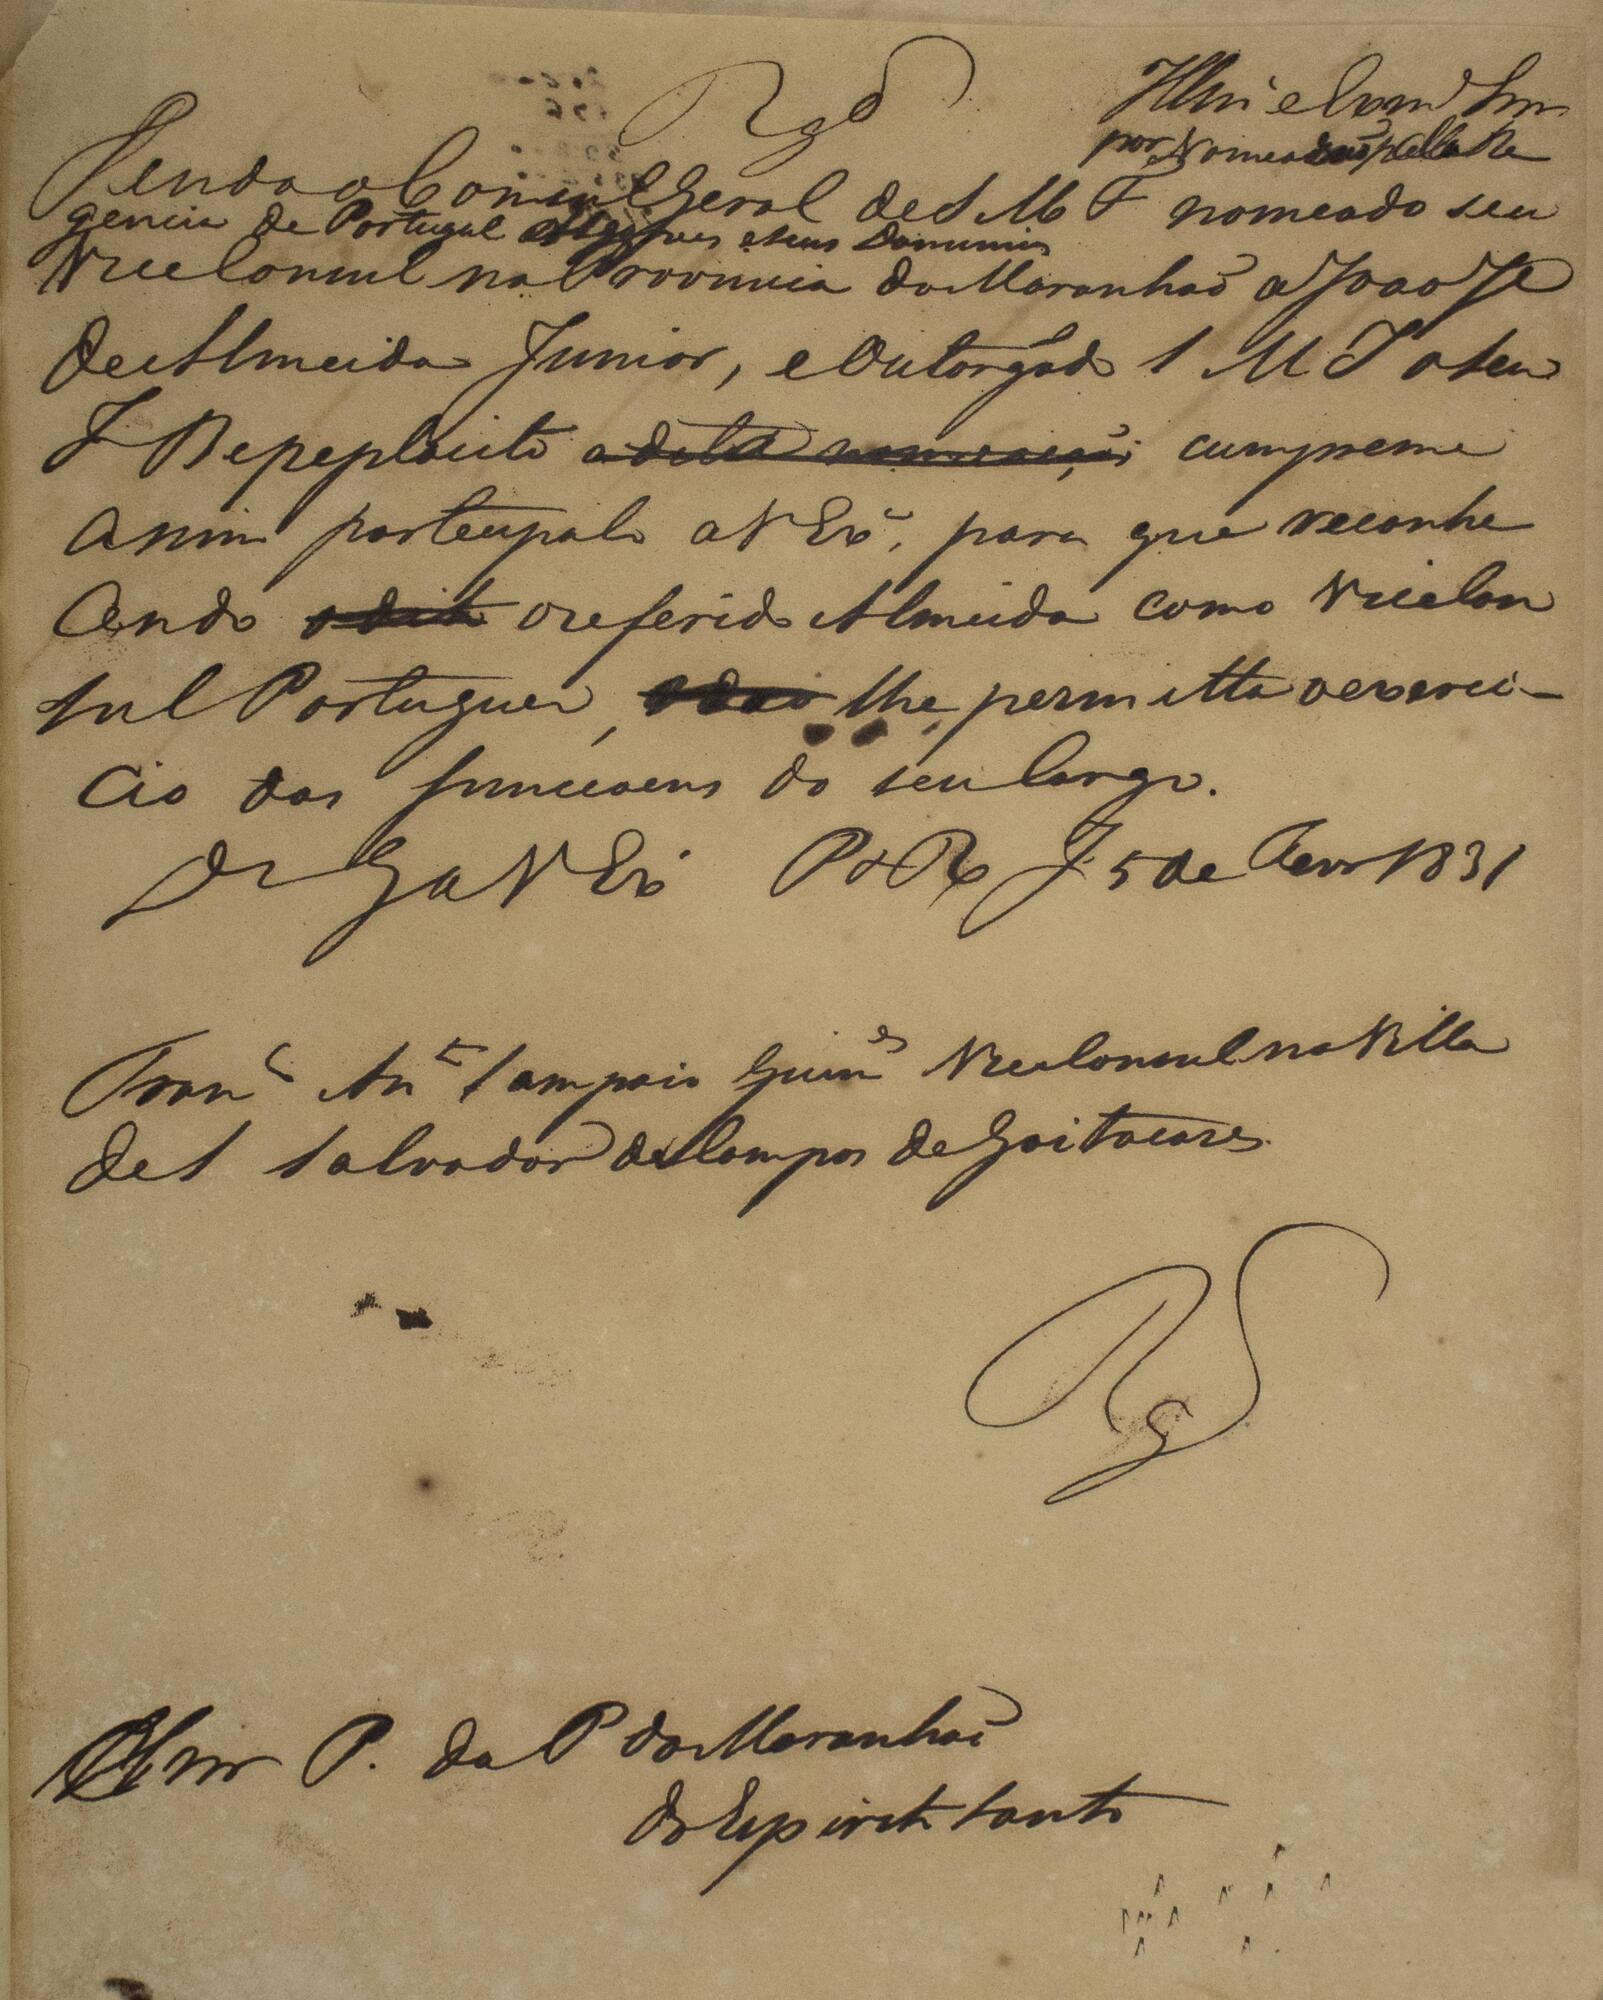 Rgdo
Illmo e Exmo Snr
por Nomeação pella Re
Tendo o Consul Geral de S M F nomeado seu
gencia de Portugal Algarves e seus Dominios
Vice Consul na Provincia do Maranhaõ a Joaõ Je
de Almeida Junior, e Outorgado S M I o seu
I Beneplacito a dita nomeaçaõ cumpreme
assim participalo a V Exa, para que reconhe
cendo o dito o referido Almeida como Vice Con
sul Portuguez, lhe permitta o exerci-
cio das funccoens do seu Cargo.
Ds Ge a V Exa P de R J 5 de Fevr 1831
Franco Anto Sampaio Guimes Vice Consul na Villa
de S Salvador de Campos de Goitacases
Rgdo
Snr P. da P do Maranhaõ
do Espirito Santo